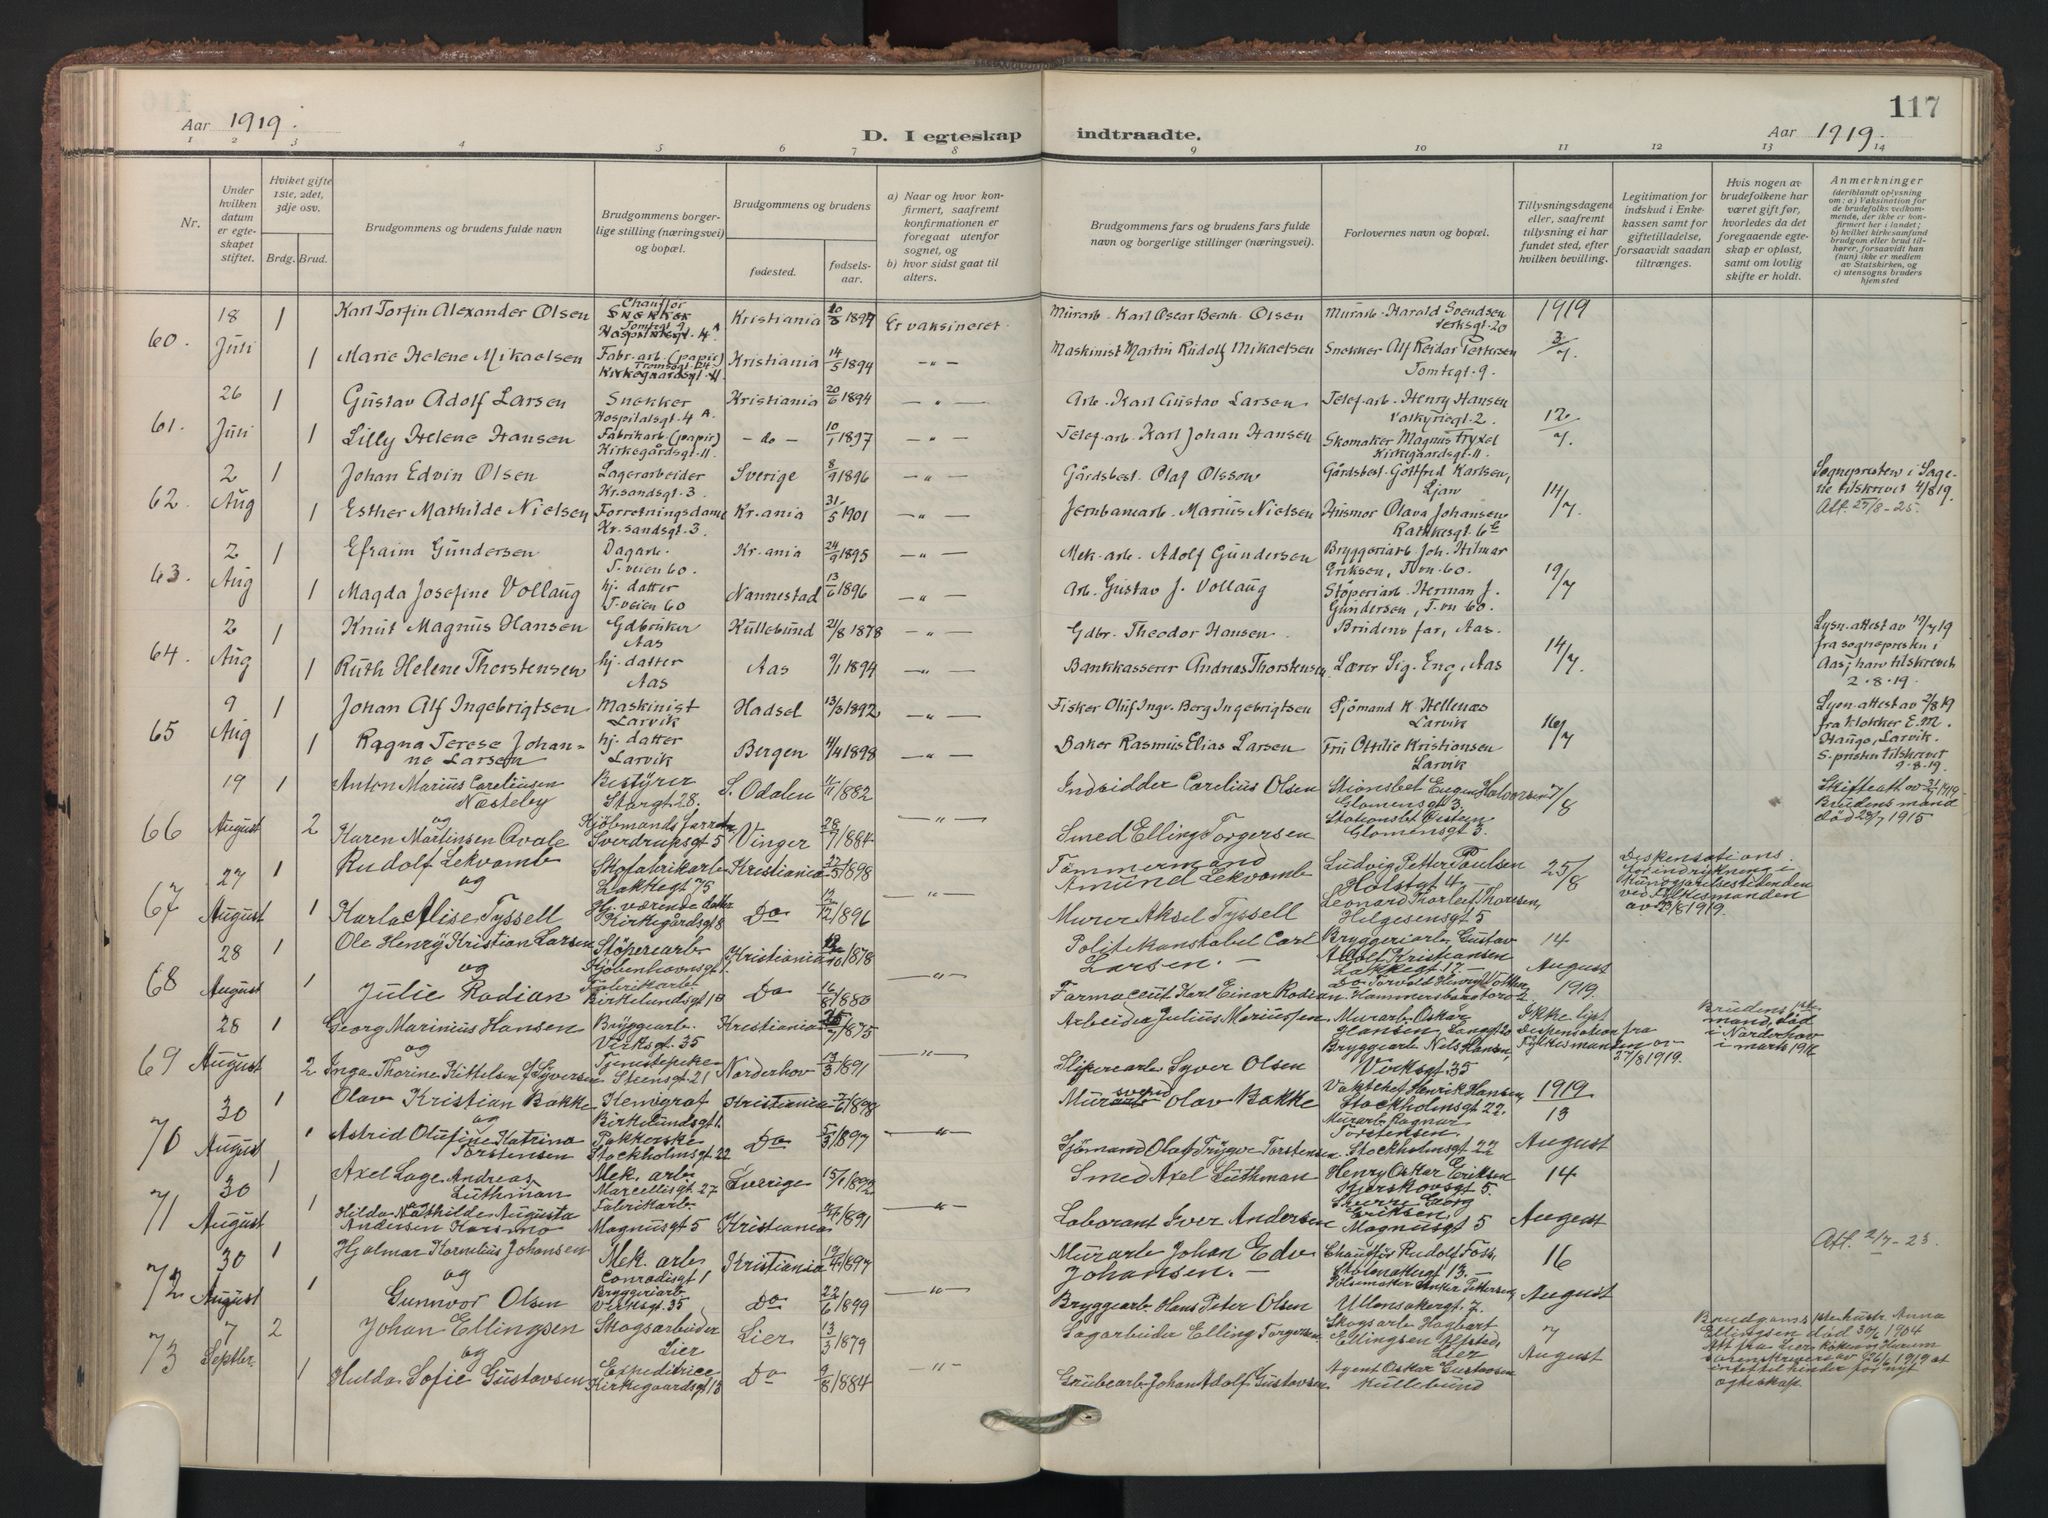 117
Aar 1919.
D. I egteskap indtraadte.
Aar 1919.
1 2 3 4 5 6 7 8 9 10 11 12 13 14
Nr.
Under hvilken datum er egteskapet stiftet.
Hviket gifte 1ste, 2det, 3dje osv.
Brdg. Brud.
Brudgommens og brudens fulde navn
Brudgommens borgerlige stilling (næringsvei) og bopæl.
Brudgommens og brudens
fødested.
fødselsaar.
a) Naar og hvor konfirmert, saafremt konfirmationen er foregaat utenfor sognet, og
b) hvor sidst gaat til alters.
Brudgommens fars og brudens fars fulde navn og borgerlige stillinger (næringsvei).
Forlovernes navn og bopæl.
Tillysningsdagene eller, saafremt tillysning ei har fundet sted, efter hvilken bevilling.
Legitimation for indskud i Enkekassen samt for giftetilladelse, forsaavidt saadan tiltrænges.
Hvis nogen av brudefolkene har været gift før, hvorledes da det foregaaende egteskap er opløst, samt om lovlig skifte er holdt.
Anmerkninger
(deriblandt oplysning om: a) Vaksination for de brudefolks vedkommende, der ikke er konfirmert her i landet; b) hvilket kirkesamfund brudgom eller brud tilhører, forsaavidt han (hun) ikke er medlem av Statskirken, og c) utensogns bruders hjemsted
60. 18 Juli 1 Karl Torfin Alexander Olsen Chauffør Snekker Tomtegt 9 Hospitalsgt. 4 A Kristiania 1897 Er vaksineret. Murarb. Karl Oscar Bernh. Olsen Murarb. Harald Svendsen Verksgt. 20 1919 3/7.
1 Marie Helene Mikaelsen Fabr. arb. (papir) Kirkegaardsgt. 11 Kristiania 14/5 1894 — " — Maskinist Martin Rudolf Mikaelsen Snekker Alf Reidar Pettersen Tomtegt. 9.
61. 26 Juli 1 Gustav Adolf Larsen Snekker Hospitalsgt. 4 A Kristiania 20/6 1894 — " — Arb. Karl Gustav Larsen Telef. arb. Henry Hansen Valkyriegt. 2. 12/7.
1 Lilly Helene Hansen Fabrikarb (papir) Kirkegårdsgt. 11 — do — 10/1 1897 — " — Telef. arb. Karl Johan Hansen Skomaker Magnus Fryxel Kirkegaardsgt. 11.
62. 2 Aug 1 Johan Edvin Olsen Lagerarbeider Kr.sandsgt. 3. Sverige 8/9 1896 — " — Gårdsbest. Olaf Olsson Gårdsbest. Gottfred Karlsen, Ljan 14/7. Sognepresten i Sagene tilskrevet 4/8 19. Att. 25/8 - 25.
1 Esther Mathilde Nielsen Forretningsdame Kr.sandsgt. 3. Kr.ania 31/5 1901 — " — Jernbanearb. Marius Nielsen Olava Johansen Rathkesgt. 6
63. 2 Aug 1 Efraim Gundersen Dagarb. T.veien 60. Kr.ania 24/9 1895 — " — Mek. arb. Adolf Gundersen Bryggeriarb. Joh. Hilmar Eriksen, T.vn. 60. 19/7
1 Magda Josefine Vollaug hj. datter T.veien 60 Nannestad 13/6 1896 — " — Arb. Gustav J. Vollaug Støperiarb. Herman J. Gundersen, T.vn 60.
64. 2 Aug 1 Knut Magnus Hansen Gdbruker Aas Kullebund 21/8 1878 — " — Gdbr. Theodor Hansen. Brudens far, Aas. 14/7. Lysn. attest av 19/7 19 fra sognepresten i Aas; harv tilskrevet 2.8.19.
1 Ruth Helene Thorstensen hj. datter Aas Aas 9/1 1894 — " — Bankkasserer Andreas Thorstensen Lærer Sig. Eng, Aas
65. 9 Aug 1 Johan Alf Ingebrigtsen Maskinist Larvik Hadsel 13/3 1892 — " — Fisker Oluf Ingv. Berg Ingebrigtsen Sjömand K. Hellenæs Larvik 16/7 Lysn. attest av 2/8 19 fra klokker E.M. Hauge, Larvik. S.presten tilskrevet 9.8.19.
1 Ragna Terese Johanne Larsen hj. datter Larvik Bergen 4/4 1898 — " — Baker Rasmus Elias Larsen Fru Ottilie Kristiansen Larvik
66 19 August 1 Anton Marius Careliussen Næsteby og Bestyrer Storgt. 28. S. Odalen 11/11 1882 — " — Indridder Carelius Olsen Stionsbet Eugen Halvorsen Glomensgt 3. 7/8 Skifteatt av 31/7 1919 Brudens mand død 23/7 1915
2 Karen Martinsen Ovale Kjøbmandsforretn. Sverdrupsgt 5 Vinger 28/7 1884 Smed Elling Torgersen Stationsbt Øistein Glomensgt 3.
67 27 August 1 Rudolf Lekvamb og Skofabrikarb. Lakkegt 75 Kristiania 27/5 1898 — " — Tømmermand Amund Lekvamb Ludvig Petter Paulsen Holstgt 4. 25/8 Dispensations. for indrykning i Kundgjørelsestidenden ved Fylkesmanden av 22/8 1919.
1 Karla Alise Tyssell Hj. værende datter Kirkegårdsgt 8 Do 12/12 1896 Murer Aksel Tyssell Leonard Thorleif Thoresen, Helgesensgt 5
68 28 August 1 Ole Henry Kristian Larsen og Støperiarb Kjøbenhavnsgt 1. Kristiania 12/10 1878 — " — Politikonstabel Carl Larsen. — Bryggeriarb. Gustav Adolf Kristiansen Lakkegt 17. — 14 August 1919.
1 Julie Rodian Fabrikarbei Birkelundsgt 10 Do 16/8 1880 Farmaceut Karl Einar Rodian Do Torvald Henry Hammersborgtorv 2.
69 28 August 1 Georg Marinius Hansen og Bryggearb. Virksgt. 35 Kristiania 25/7 1875 — " — Arbeider Julius Mariussen Murarb. Oskar Hansen, Langgt 20 Ikke lyst Dispensation fra Fylkesmanden av 27/8 1919. Brudens 1ste mand, død i Norderhov i marts 1916
2 Inga Thorine Kittelsen f. Syversen Tjenestepike Steensgt. 21 Norderhov 13/3 1891 Syver Olsen Bryggearb Nels Hansen, Virksgt. 35
70 30 August 1 Olav Kristian Bakke og Birkelundsgt 1. Kristiania 2/6 1898 — " — Mursvend Olav Bakke Vaktchef Henrik Hansen Stockholmsgt 22. 1919 13 August
1 Astrid Olufine Katrina Torstensen Pakkerske Stockholmsgt 22 Do 5/3 1897 Sjømand Olaf Trygve Torstensen Murarb. Ragnar Torstensen. Stockholmsgt 22
71 30 August 1 Axel Lage Andreas Luthman Mek. arb. Marcellisgt 27 Sverige 15/1 1892 — " — Smed Axel Luthman Henry Oskar Eriksen Hjerskovsgt 5. 14 August
1 Hilda Mathilde Augusta Andersen Karsmo Fabrikarb. Magnusgt 5 Kristiania 1891 Laborant Iver Andersen Sverre Georg Eriksen, Magnusgt 5
72 30 August 1 Hjalmar Kornelius Johansen og Mek. arb. Conradisgt 1 Kristiania 19/4 1897 — " — Murarb Johan Edv Johansen. — Chauffør Rudolf Foss, 13. — 16 August Att. 2/7 - 23.
1 Gunnvor Olsen Bryggeriarb Virksgt. 35 Do 22/6 1899 Bryggearb. Hans Peter Olsen Pølsemaker Anker Pettersen Ullensakergt. 7.
73 7 Septbr. 2 Johan Ellingsen og Skogsarbeider Lier Lier 13/3 1879 — " — Sagarbeider Elling Torgersen Skogsarb Hagbart Ellingsen Lier 7 August Brudgoms 1ste hustr. Anna Ellingsen død 30/6 1904 Att fra Lier, Røken, Hurum sorenskriveri av 26/6 1919 at intet til hinder for nyt egteskap.
1 Hulda Sofie Gustavsen Expeditrice Kirkegaardsgt 13 Do 9/8 1884 Grubearb. Johan Adolf Gustavsen Agent Oskar Gustavsen Kullebund